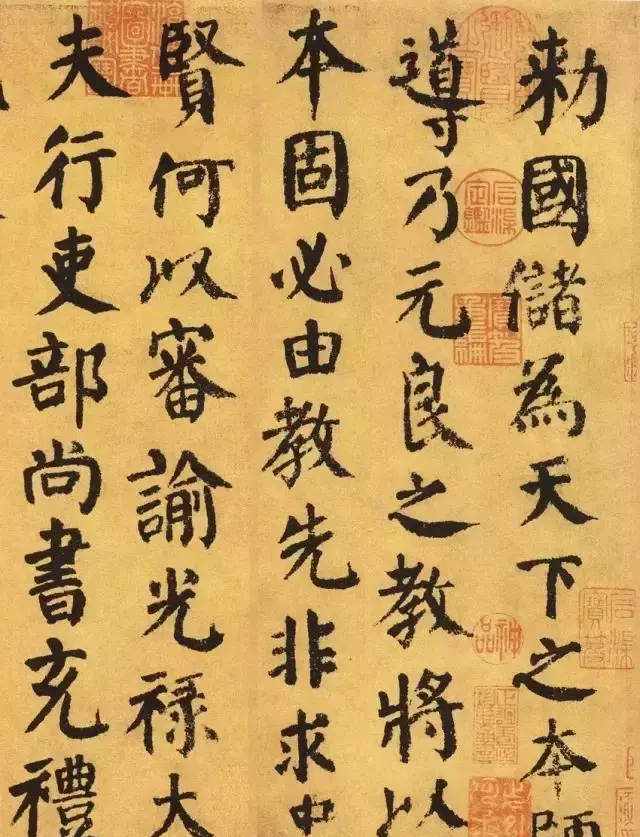 勑國儲為天下之本師
導乃元良之教將以
本固必由教先非求
賢何以審諭光祿大
夫行吏部尚書充禮
神品